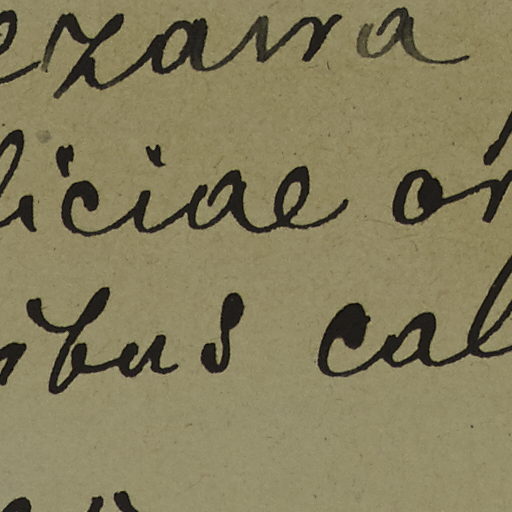 ezawa
liciae or
ribus cal